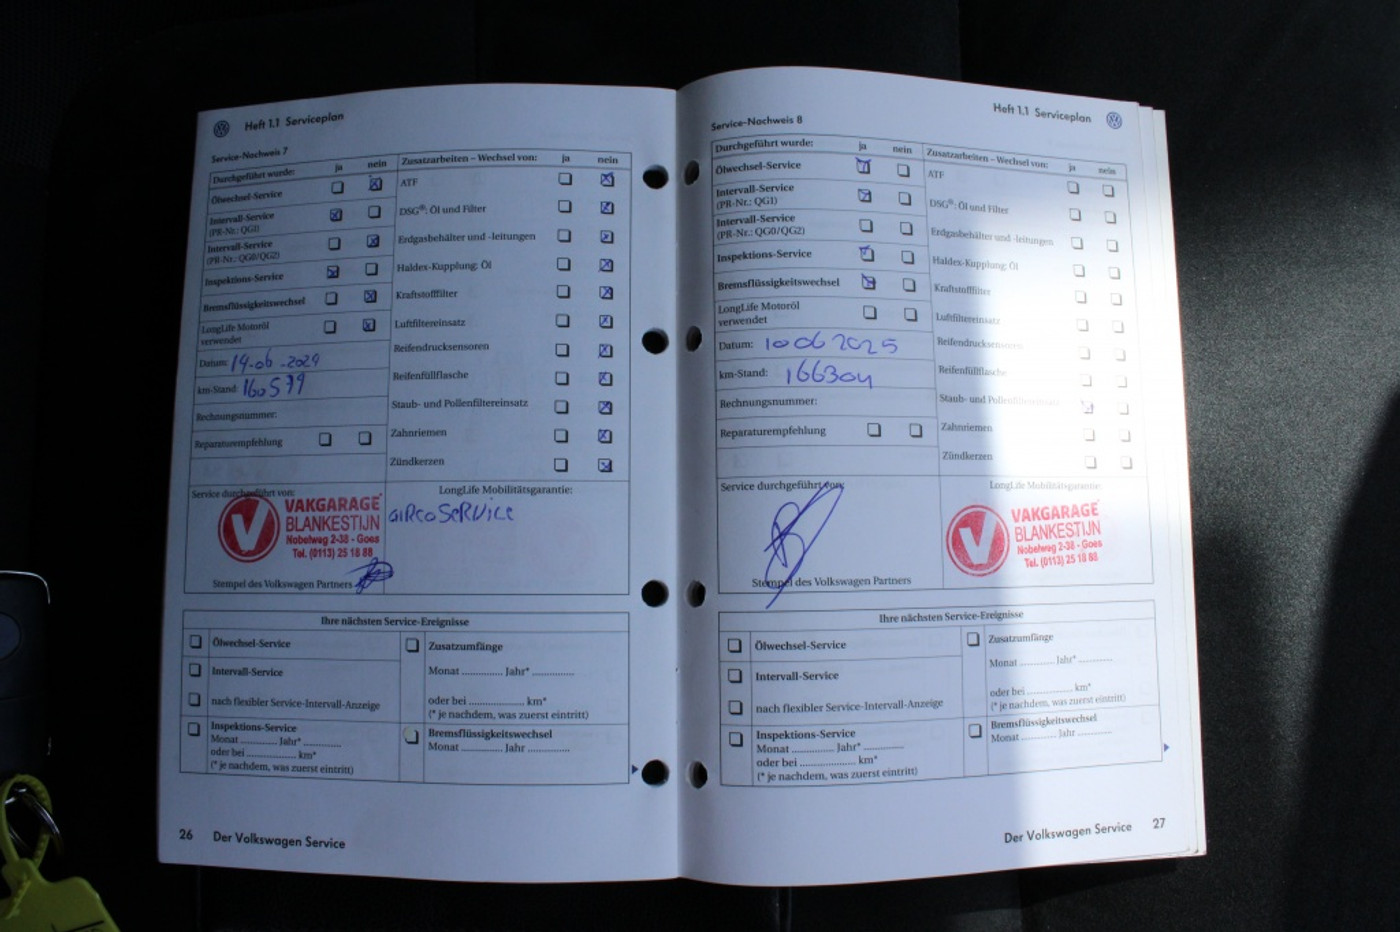 Heft 1.1 Serviceplan
Service-Nachweis 7
Durchgeführt wurde: ja nein
Ölwechsel-Service
Intervall-Service
(PR-Nr.: QG1)
Intervall-Service
(PR-Nr.: QG0/QG2)
Inspektions-Service
Bremsflüssigkeitswechsel
LongLife Motoröl
verwendet
Datum: 14-06-2024
km-Stand: 160579
Rechnungsnummer:
Reparaturempfehlung
Zusatzarbeiten – Wechsel von: ja nein
ATF
DSG®: Öl und Filter
Erdgasbehälter und -leitungen
Haldex-Kupplung: Öl
Kraftstofffilter
Luftfiltereinsatz
Reifendrucksensoren
Reifenfüllflasche
Staub- und Pollenfiltereinsatz
Zahnriemen
Zündkerzen
Service durchgeführt von:
VAKGARAGE
BLANKESTIJN
Nobelweg 2-38 - Goes
Tel. (0113) 25 18 88
Stempel des Volkswagen Partners
LongLife Mobilitätsgarantie:
AIRCO SERVICE
Ihre nächsten Service-Ereignisse
Ölwechsel-Service
Intervall-Service
nach flexibler Service-Intervall-Anzeige
Inspektions-Service
Monat ............ Jahr* ............
oder bei ................ km*
(* je nachdem, was zuerst eintritt)
Zusatzumfänge
Monat ............ Jahr* ............
oder bei ................ km*
(* je nachdem, was zuerst eintritt)
Bremsflüssigkeitswechsel
Monat ............ Jahr ............
26 Der Volkswagen Service
Heft 1.1 Serviceplan
Service-Nachweis 8
Durchgeführt wurde: ja nein
Ölwechsel-Service
Intervall-Service
(PR-Nr.: QG1)
Intervall-Service
(PR-Nr.: QG0/QG2)
Inspektions-Service
Bremsflüssigkeitswechsel
LongLife Motoröl
verwendet
Datum: 10 06 2025
km-Stand: 166304
Rechnungsnummer:
Reparaturempfehlung
Zusatzarbeiten – Wechsel von: ja nein
ATF
DSG®: Öl und Filter
Erdgasbehälter und -leitungen
Haldex-Kupplung: Öl
Kraftstofffilter
Luftfiltereinsatz
Reifendrucksensoren
Reifenfüllflasche
Staub- und Pollenfiltereinsatz
Zahnriemen
Zündkerzen
Service durchgeführt von:
Stempel des Volkswagen Partners
LongLife Mobilitätsgarantie:
VAKGARAGE
BLANKESTIJN
Nobelweg 2-38 - Goes
Tel. (0113) 25 18 88
Ihre nächsten Service-Ereignisse
Ölwechsel-Service
Intervall-Service
nach flexibler Service-Intervall-Anzeige
Inspektions-Service
Monat ............ Jahr* ............
oder bei ................ km*
(* je nachdem, was zuerst eintritt)
Zusatzumfänge
Monat ............ Jahr* ............
oder bei ................ km*
(* je nachdem, was zuerst eintritt)
Bremsflüssigkeitswechsel
Monat ............ Jahr ............
Der Volkswagen Service 27